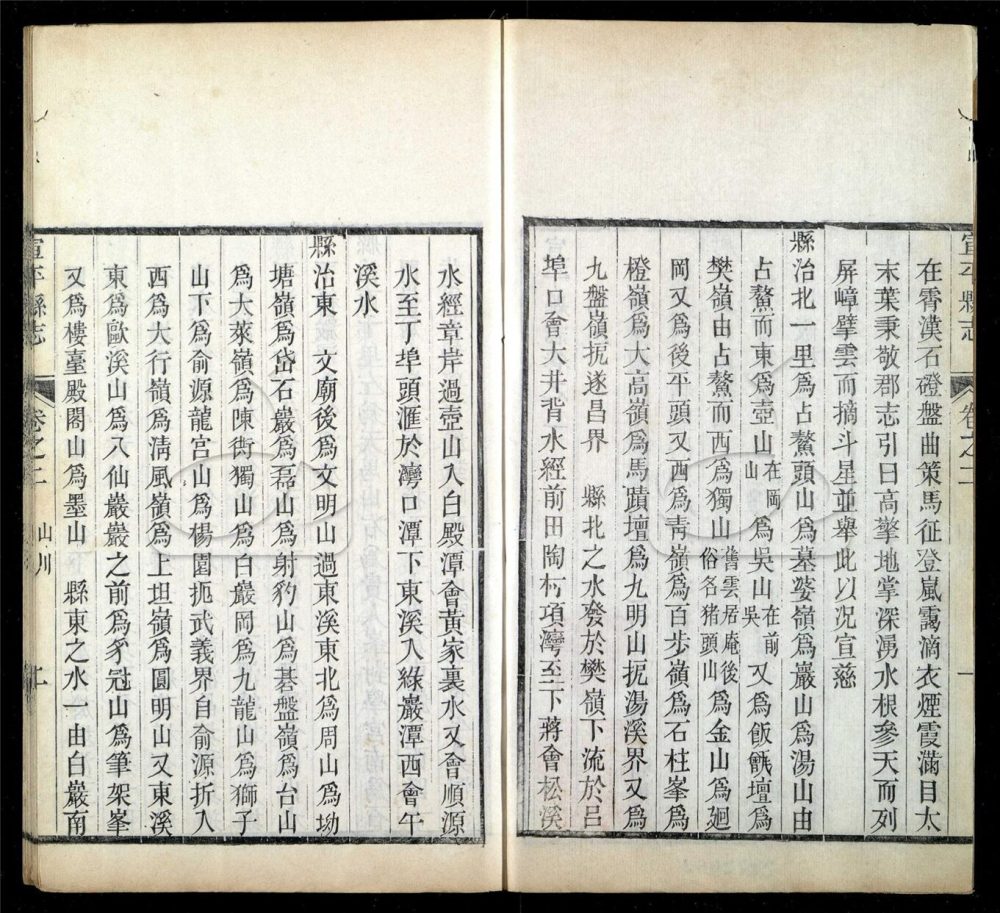 宣平縣志
卷之二
一
在霄漢石磴盤曲策馬征登嵐靄滴衣煙霞滿目太
末葉秉敬郡志引曰高擎地掌深湧水根參天而列
屏嶂擘雲而摘斗星並舉此以况宣慈
縣治北一里爲占鰲頭山爲墓婆嶺爲巖山爲湯山由
占鰲而東爲壺山在岡山爲吳山在前吳又爲飯甑壇爲
樊嶺由占鰲而西爲獨山舊雲居庵後俗名猪頭山爲金山爲廻
岡又爲後平頭又西爲靑嶺爲百步嶺爲石柱峯爲
橙嶺爲大高嶺爲馬蹟壇爲九明山扼湯溪界又爲
九盤嶺扼遂昌界 縣北之水發於樊嶺下流於呂
埠口會大井背水經前田陶村項灣至下蔣會松溪
水經章岸過壺山入白殿潭會黃家裏水又會順源
水至丁埠頭滙於灣口潭下東溪入綠巖潭西會午
溪水
縣治東 文廟後爲文明山過東溪東北爲周山爲坳
塘嶺爲岱石巖爲磊山爲射豹山爲碁盤嶺爲台山
爲大萊嶺爲陳街獨山爲白巖岡爲九龍山爲獅子
山下爲俞源龍宮山爲楊園扼武義界自俞源折入
西爲大行嶺爲淸風嶺爲上坦嶺爲圓明山又東溪
東爲歐溪山爲八仙巖巖之前爲豸冠山爲筆架峯
又爲樓臺殿閣山爲墨山 縣東之水一由白巖南
宣平縣志
卷之二
山川